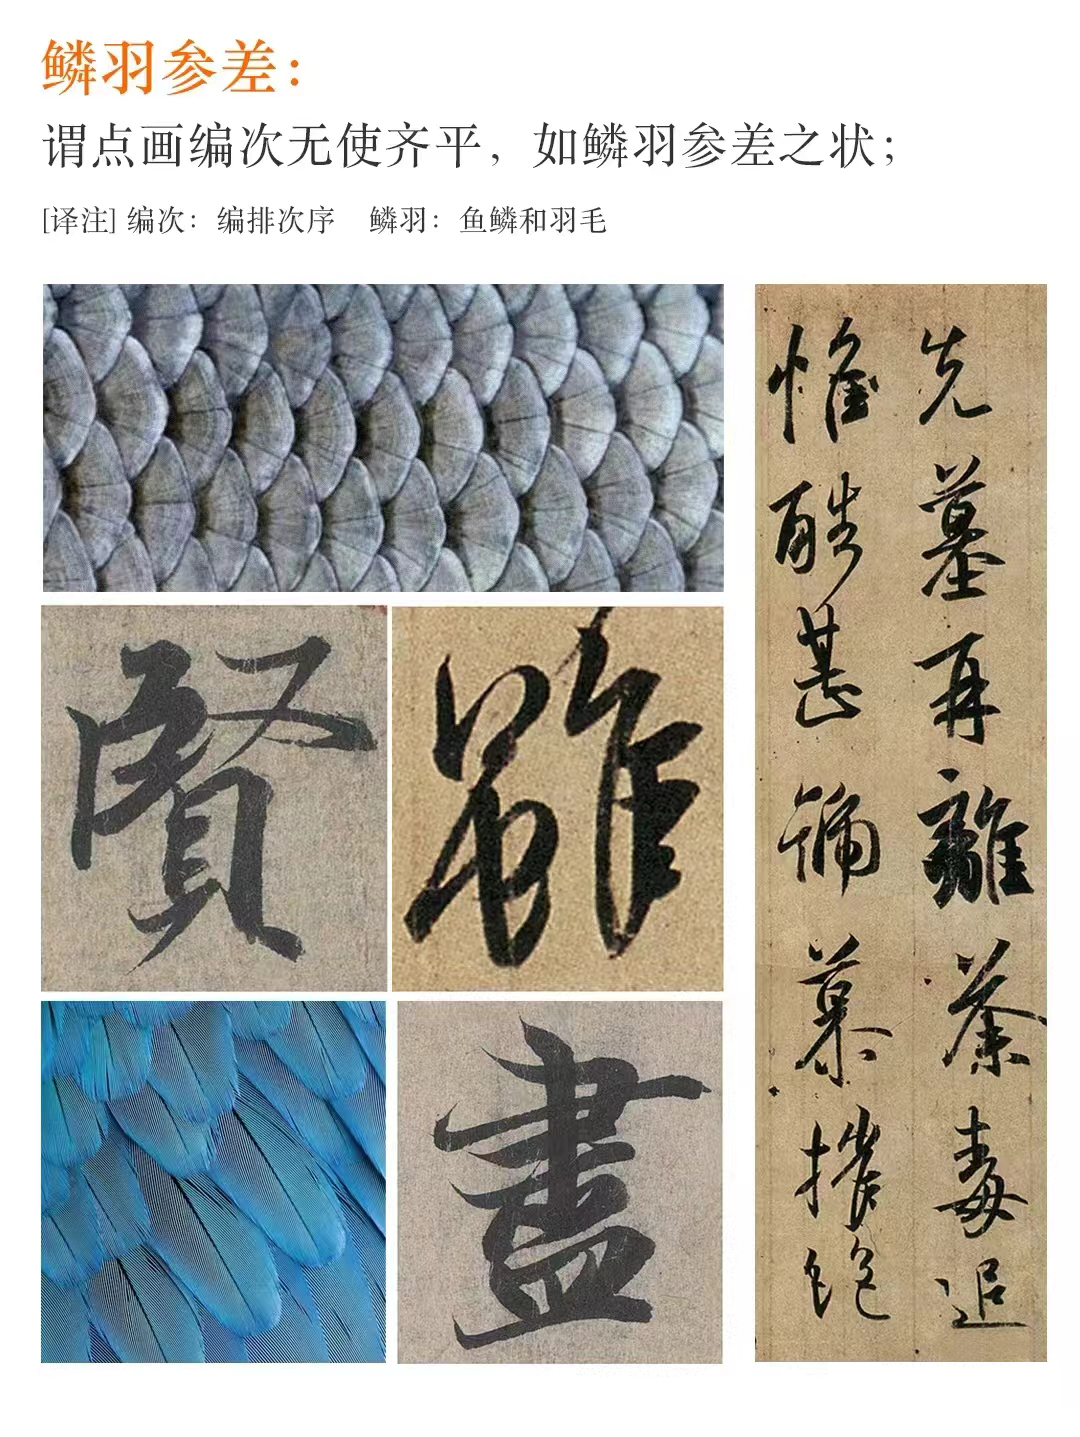 鳞羽参差：
谓点画编次无使齐平，如鳞羽参差之状；
[译注] 编次：编排次序　鳞羽：鱼鳞和羽毛
賢
雖
盡
先墓再離荼毒追
惟酷甚號慕摧絶